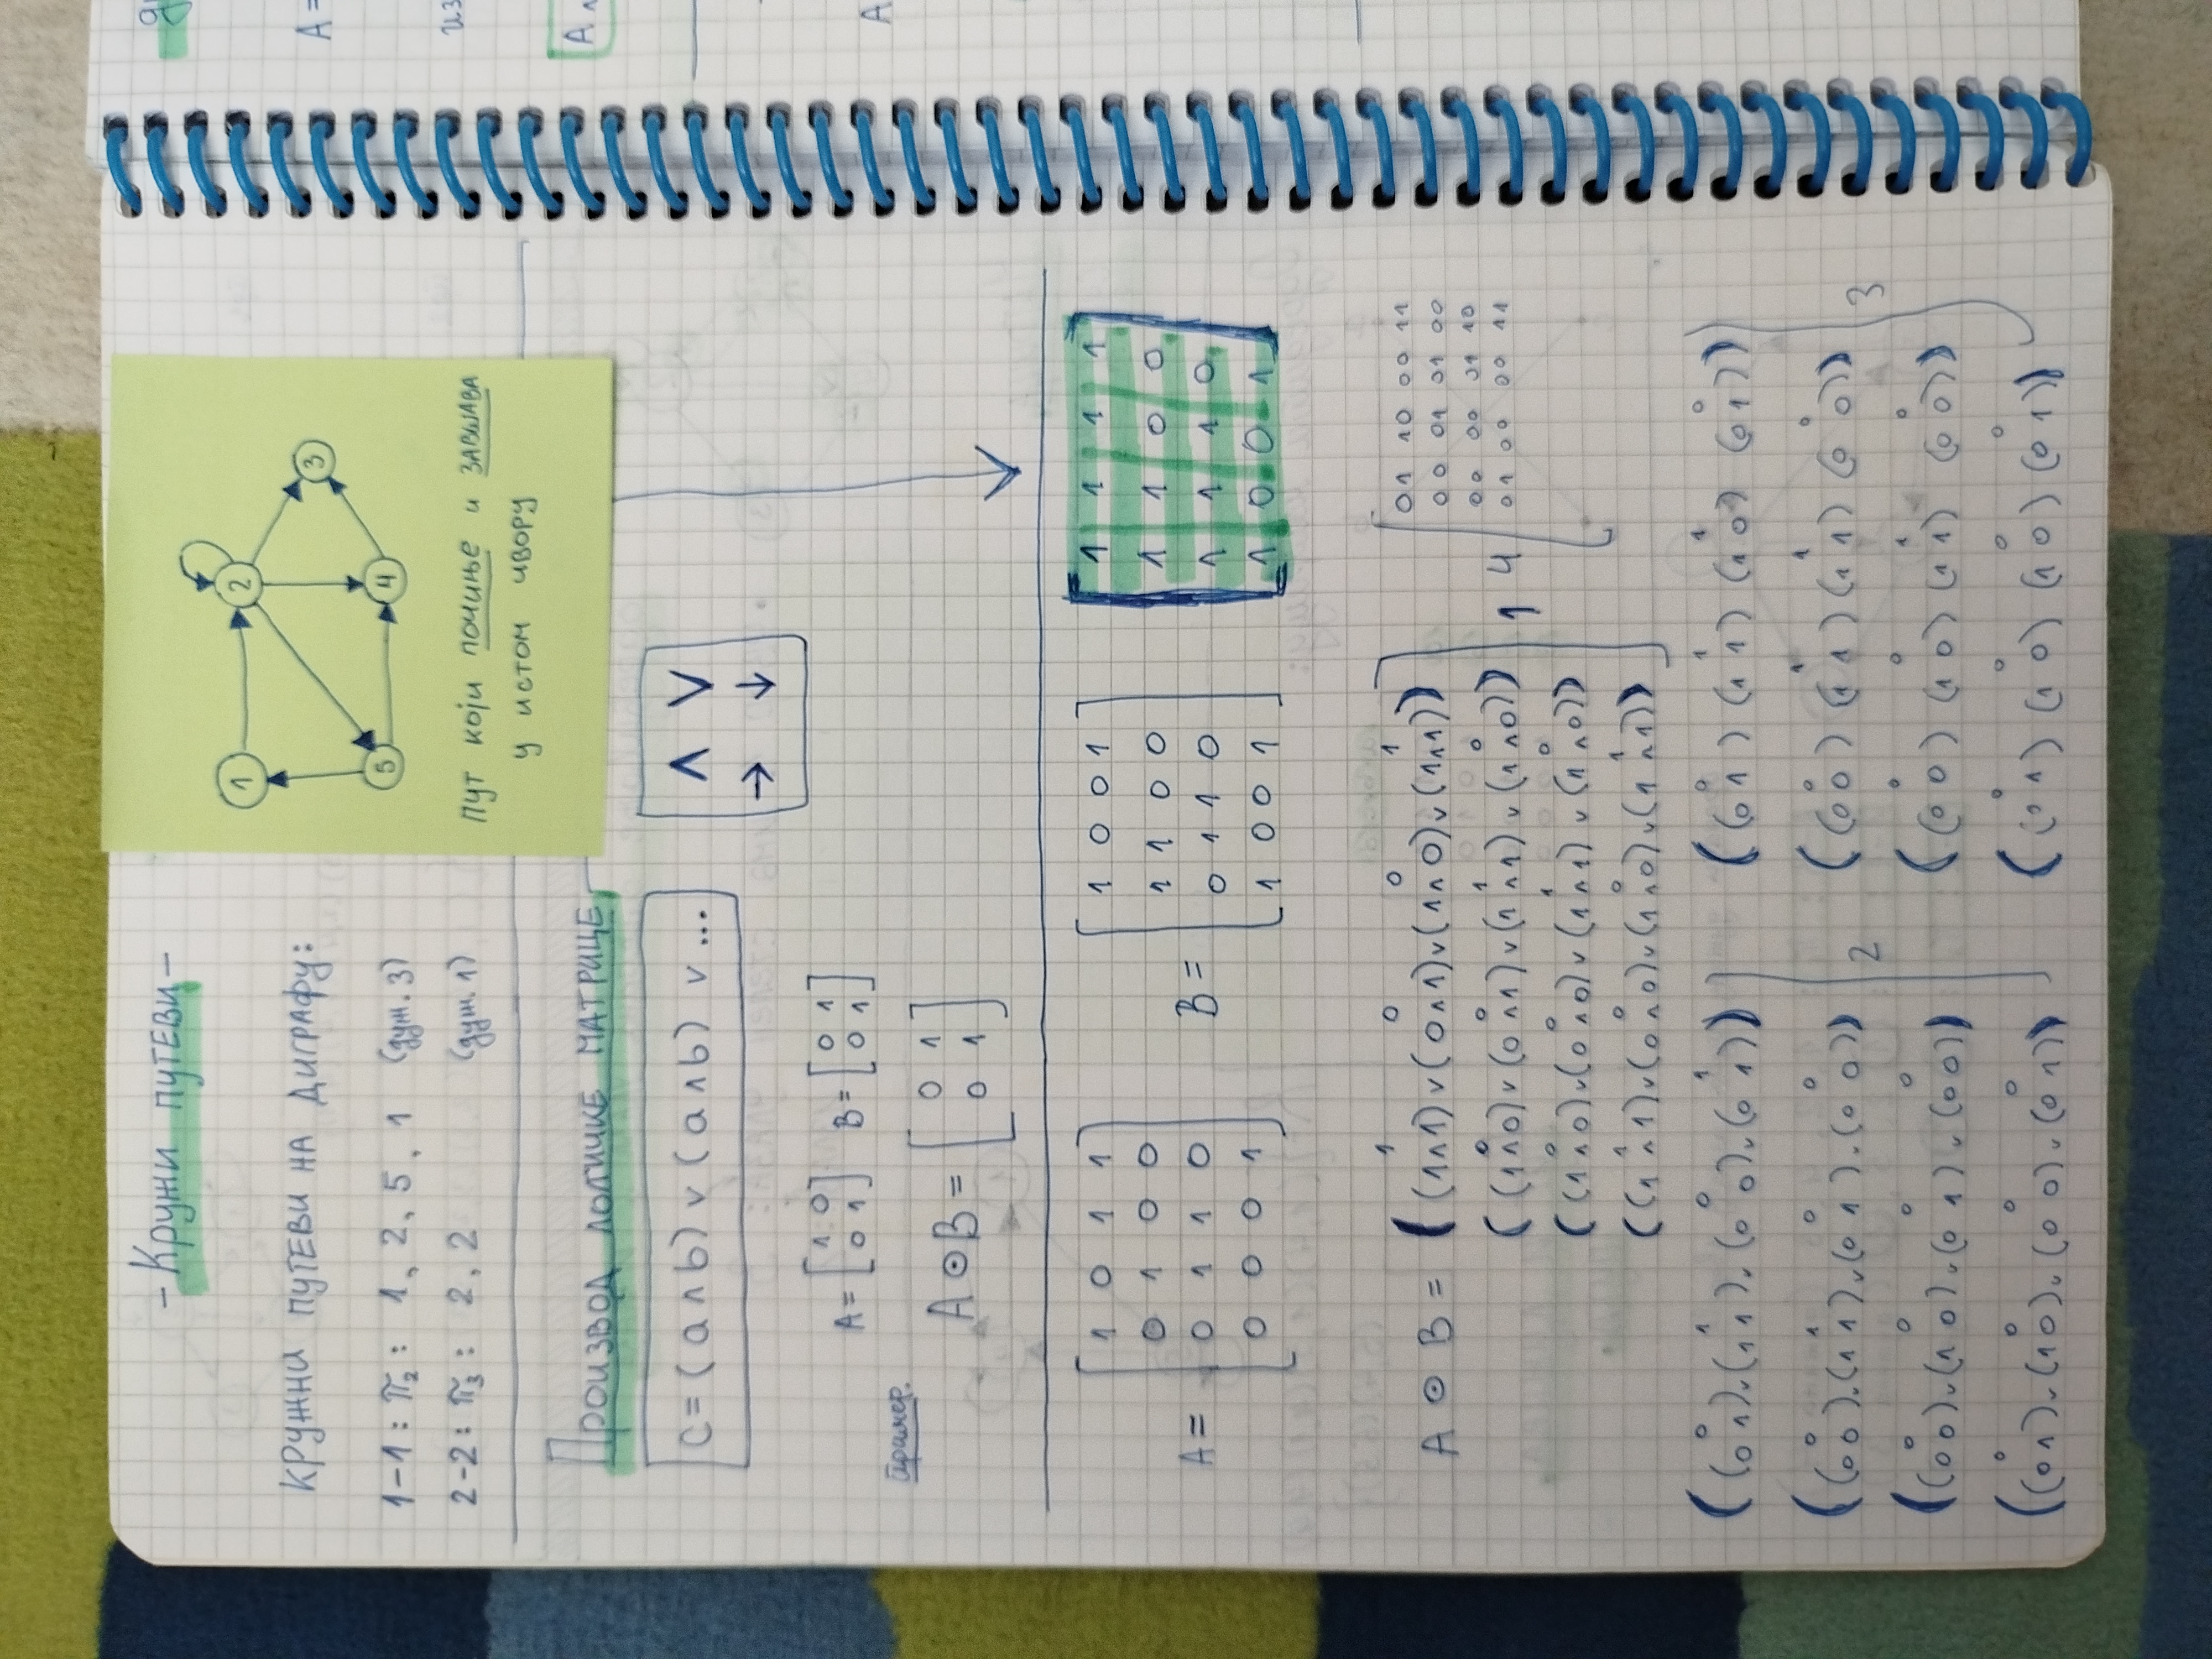 - Кружни путеви -
КРУЖНИ ПУТЕВИ НА ДИГРАФУ:
1-1 : π₂ : 1, 2, 5, 1 (дуж. 3)
2-2 : π₃ : 2, 2 (дуж. 1)
1 2 3
5 4
Пут који почиње и завшава
у истом чвору
Производ логичке матрице
c = (a ∧ b) ∨ (a ∧ b) ∨ ...
∧ ∨
→ ↓
A = [1 0] B = [0 1]
[0 1] [0 1]
Пример.
A ⊙ B = [0 1]
[0 1]
A = [1 0 1 1] B = [1 0 0 1] [1 1 1 1]
[0 1 0 0] [1 1 0 0] [1 1 0 0]
[0 1 1 0] [0 1 1 0] [1 1 1 0]
[0 0 0 1] [1 0 0 1] [1 0 0 1]
A ⊙ B = ((1∧1)∨(0∧1)∨(1∧0)∨(1∧1)) 1 4 [01 10 00 11
((1∧0)∨(0∧1)∨(1∧1)∨(1∧0)) 00 01 01 00
((1∧0)∨(0∧0)∨(1∧1)∨(1∧0)) 00 00 01 10
((1∧1)∨(0∧0)∨(1∧0)∨(1∧1)) 01 00 00 11
((0 1)∨(1 1)∨(0 0)∨(0 1)) ((0 1) (1 1) (1 0) (0 1))
((0 0)∨(1 1)∨(0 1)∨(0 0)) 2 ((0 0) (1 1) (1 1) (0 0)) 3
((0 0)∨(1 0)∨(0 1)∨(0 0)) ((0 0) (1 0) (1 1) (0 0))
((0 1)∨(1 0)∨(0 0)∨(0 1)) ((0 1) (1 0) (1 0) (0 1))
A =
из
A
A